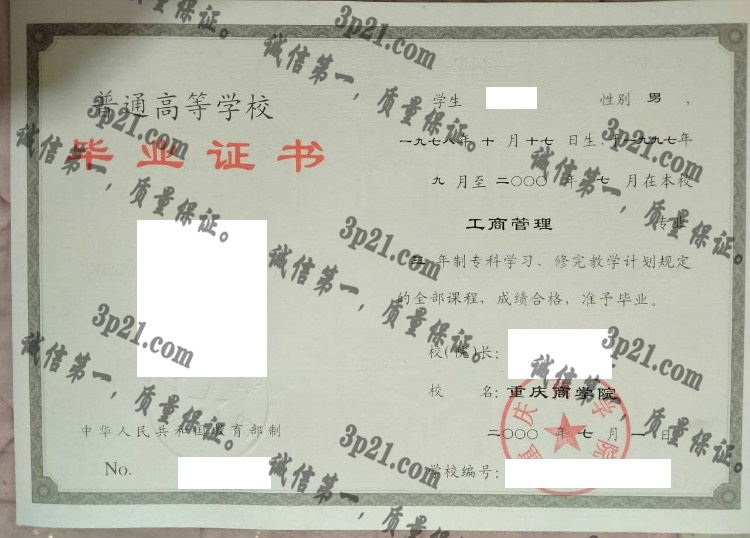 普通高等学校
毕业证书
中华人民共和国教育部制
No.
学生 性别 男 ，
一九七八年 十 月 十七 日生，于一九九七年
九 月至 二〇〇〇 年 七 月在本校
工商管理 专业
三 年制专科学习，修完教学计划规定
的全部课程，成绩合格，准予毕业。
校(院)长：
校 名：重庆商学院
二〇〇〇 年 七 月 一 日
学校编号：
重庆 学院
3p21.com
诚信第一，质量保证。
3p21.com
诚信第一，质量保证。
3p21.com
诚信第一，质量保证。
3p21.com
诚信第一，质量保证。
3p21.com
诚信第一，质量保证。
3p21.com
诚信第一，质量保证。
3p21.com
诚信第一，质量保证。
3p21.com
诚信第一，质量保证。